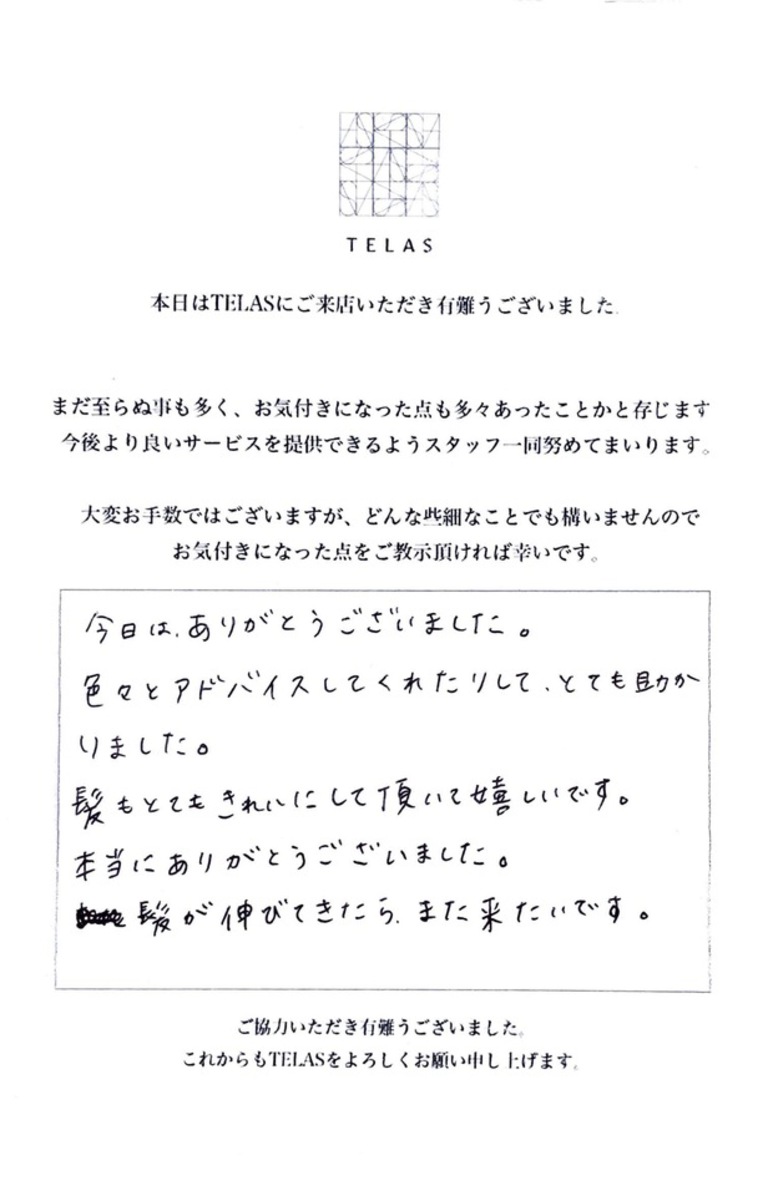 TELAS
本日はTELASにご来店いただき有難うございました。
まだ至らぬ事も多く、お気付きになった点も多々あったことかと存じます
今後より良いサービスを提供できるようスタッフ一同努めてまいります。
大変お手数ではございますが、どんな些細なことでも構いませんので
お気付きになった点をご教示頂ければ幸いです。
今日は、ありがとうございました。
色々とアドバイスしてくれたりして、とても助か
りました。
髪もとてもきれいにして頂いて嬉しいです。
本当にありがとうございました。
髪が伸びてきたら、また来たいです。
ご協力いただき有難うございました。
これからもTELASをよろしくお願い申し上げます。